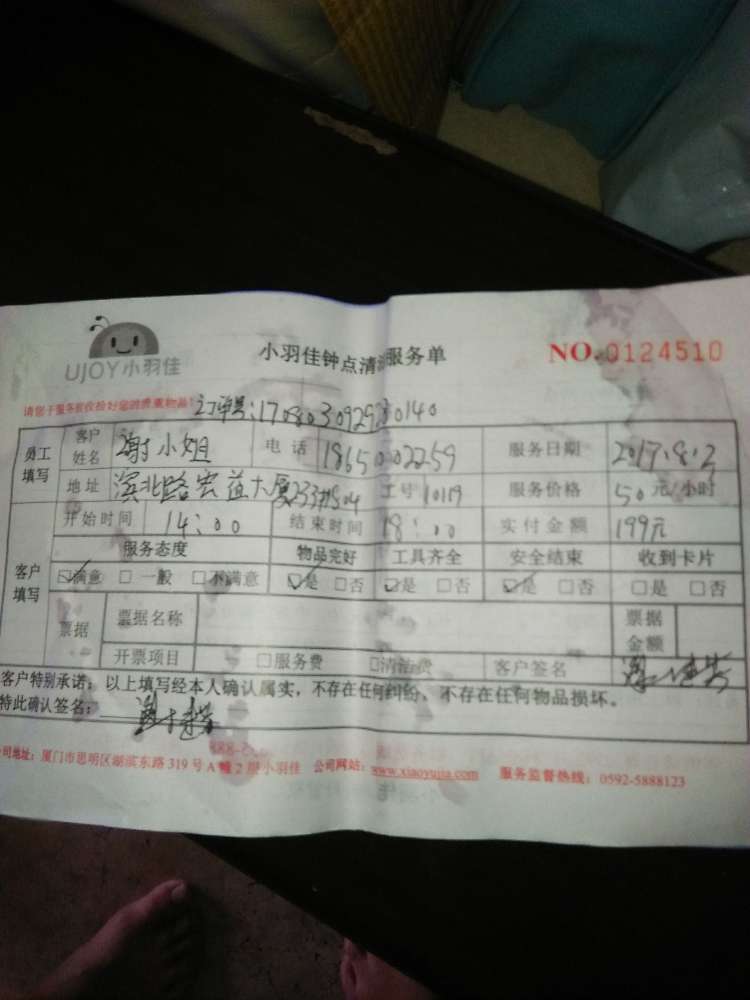 UJOY小羽佳
小羽佳钟点清洁服务单
NO.0124510
请您于服务前收捡好您的贵重物品!
订单号:
员工填写 客户姓名 谢小姐 电话 服务日期 2017.8.3
地址 滨北路宏益大厦 工号 10119 服务价格 50元/小时
客户填写 开始时间 14:00 结束时间 18:00 实付金额 199元
服务态度 物品完好 工具齐全 安全结束 收到卡片
☑满意 □一般 □不满意 ☑是 □否 ☑是 □否 ☑是 □否 □是 □否
票据 票据名称 票据金额
开票项目 □服务费 □清洁费 客户签名
客户特别承诺:以上填写经本人确认属实,不存在任何纠纷,不存在任何物品损坏。
特此确认签名:
公司地址:厦门市思明区湖滨东路319号A幢2层小羽佳 公司网站:www.xiaoyujia.com 服务监督热线:0592-5888123